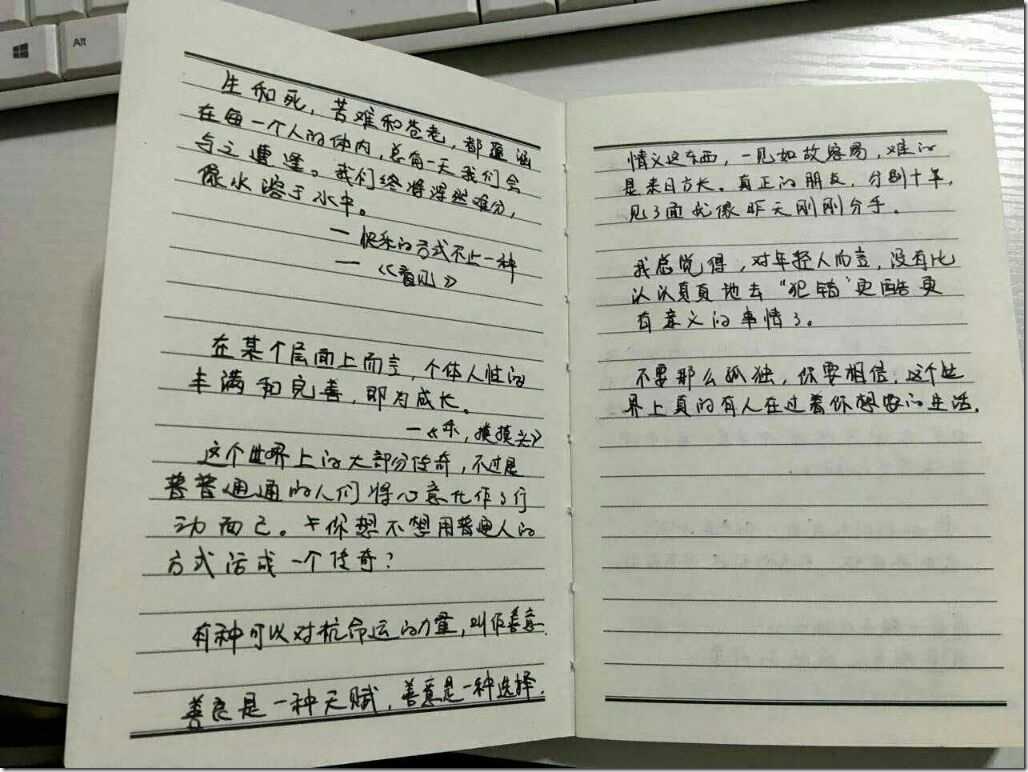 Alt
生和死，苦难和苍老，都蕴涵
在每一个人的体内，总有一天我们会
与之遭逢。我们终将浑然难分，
像水溶于水中。
一 快乐的方式不止一种
一 《看见》
在某个层面上而言，个体人性的
丰满和完善，即为成长。
一《乖，摸摸头》
这个世界上的大部分传奇，不过是
普普通通的人们将心意化作了行
动而已。 你想不想用普通人的
方式活成一个传奇？
有种可以对抗命运的力量，叫作善意.
善良是一种天赋，善意是一种选择.
情义这东西，一见如故容易，难的
是来日方长。真正的朋友，分别十年，
见了面尤像昨天刚刚分手。
我总觉得，对年轻人而言，没有比
认认真真地去“犯错”更酷更
有意义的事情了。
不要那么孤独，你要相信，这个世
界上真的有人在过着你想要的生活.